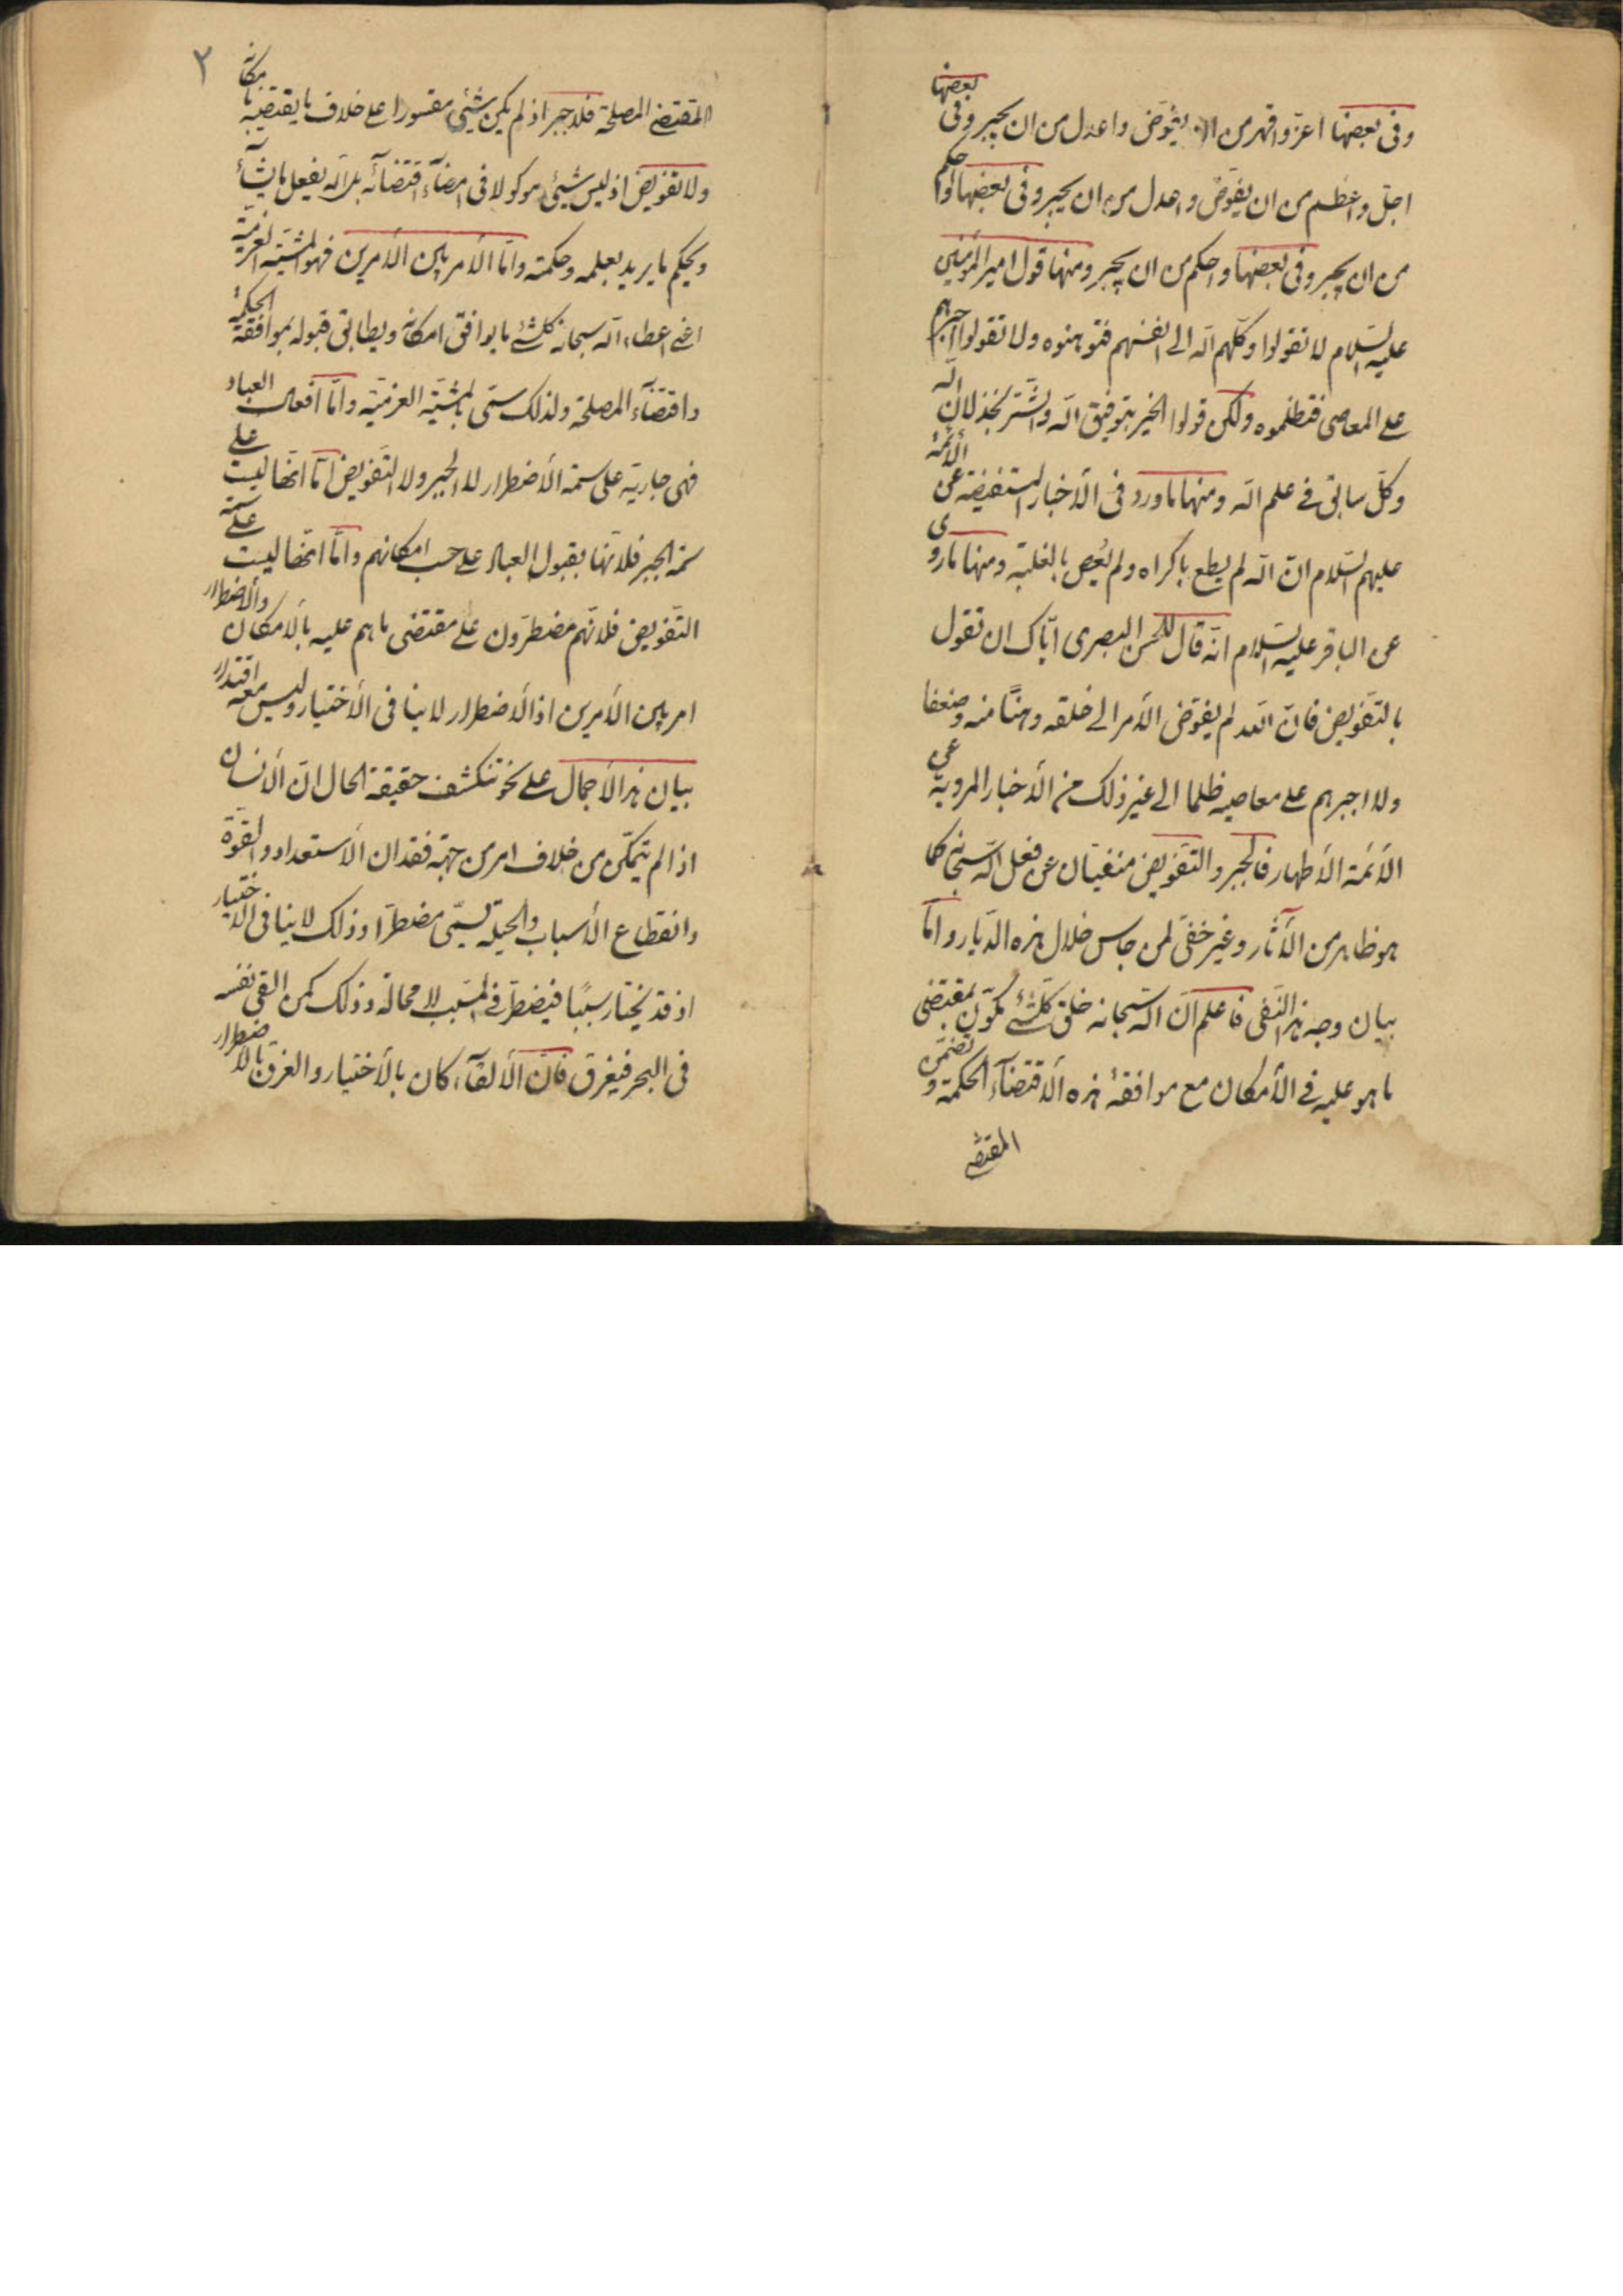 وفى بعضها اعزّ واقهر من ان يفوّض واعدل من ان يجبر وفى بعضها
اجلّ واعظم من ان يفوّض واعدل من ان يجبر وفى بعضها واحكم
من ان يجبر وفى بعضها واحكم من ان يجبر ومنها قول امير المؤمنين
عليه السّلام لا تقولوا وكّلهم اللّه الى انفسهم فتوهنوه ولا تقولوا اجبرهم
على المعاصى فتظلموه ولكن قولوا الخير بتوفيق اللّه والشّر بخذلان اللّه
وكلّ سابق فى علم اللّه ومنها ما ورد فى الأخبار المستفيضة عن الأئمّة
عليهم السّلام انّ اللّه لم يطع باكراه ولم يُعص بالغلبة ومنها ما روى
عن الباقر عليه السّلام انّه قال للحسن البصرى ايّاك ان تقول
بالتّفويض فانّ اللّه لم يفوّض الأمر الى خلقه وهنًا منه وضعفا
ولا اجبرهم على معاصيه ظلما الى غير ذلك من الأخبار المرويّة عن
الأئمّة الأطهار فالجبر والتّفويض منفيّان عن فعل اللّه سبحانه كما
هو ظاهر من الآثار وغير خفىّ لمن جاس خلال هذه الدّيار وامّا
بيان وجه هذا النّفى فاعلم انّ اللّه سبحانه خلق كلّشئ بمقتضى
ما هو عليه فى الأمكان مع موافقة هذه الأقتضاء الحكمة و
المقتضى
٢
المقتضى المصلحة فلا جبر اذ لم يكن شيئى مقسورا على خلاف ما يقتضيه امكانه
ولا تفويض اذ ليس شيئى موكولا فى امضاء اقتضائه بل اللّه يفعل ما يشاء
ويحكم ما يريد بعلمه وحكمته وامّا الأمر بين الأمرين فهو المشيّة العزميّة
اعنى اعطاء اللّه سبحانه كلشئ ما يوافق امكانه ويطابق قبوله بموافقة الحكمة
واقتضاء المصلحة ولذلك سمّى بالمشيّة العزميّة وامّا افعال العباد
فهى جارية على سمة الأضطرار لا الجبر ولا التّفويض امّا انّها ليست على
سمة الجبر فلانّها بقبول العباد على حسب امكانهم وامّا انّها ليست على سمة
التّفويض فلانّهم مضطرّون على مقتضى ما هم عليه بالأمكان والأضطرار
امر بين الأمرين اذ الأضطرار لا ينافى الأختيار وليس معه اقتدار
بيان هذا الأجمال على نحو تنكشف حقيقة الحال انّ الأنسان
اذا لم يتمكّن من خلاف امر من جهة فقدان الأستعداد والقوّة
وانقطاع الأسباب والحيلة يسمّى مضطرّا وذلك لا ينافى الأختيار
اذ قد يختار سببًا فيضطرّ فى المسبب لا محالة وذلك كمن القى نفسه
فى البحر فيغرق فانّ الألقاء كان بالأختيار والغرق بالأضطرار